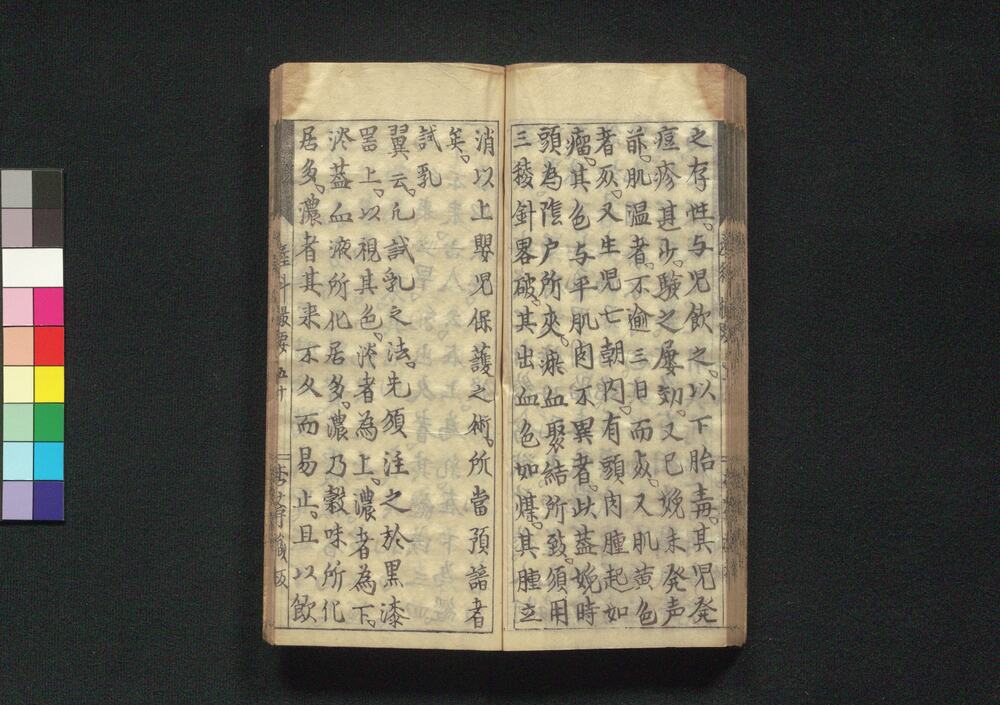 之存性。与児飲之。以下胎毒。其児発
痘疹甚少。験之屡効。又已娩未発声
前。肌温者。不逾三日而死。又肌黄色
者死。又生児七朝内。有頭肉腫起如
瘤。其色与平肌肉不異者。此蓋娩時
頭為陰户所夾。瘀血聚結所致。須用
三稜針畧破。其出血色如煤。其腫立
消以上嬰児保護之術。所當預諳者
矣。
試乳
翼云。凢試乳之法。先須注之於黒漆
噐上。以視其色。淡者為上。濃者為下。
淡蓋血液所化居多。濃乃穀味所化
居多。濃者其来不久而易止。且以飲
産科 撮要 五十